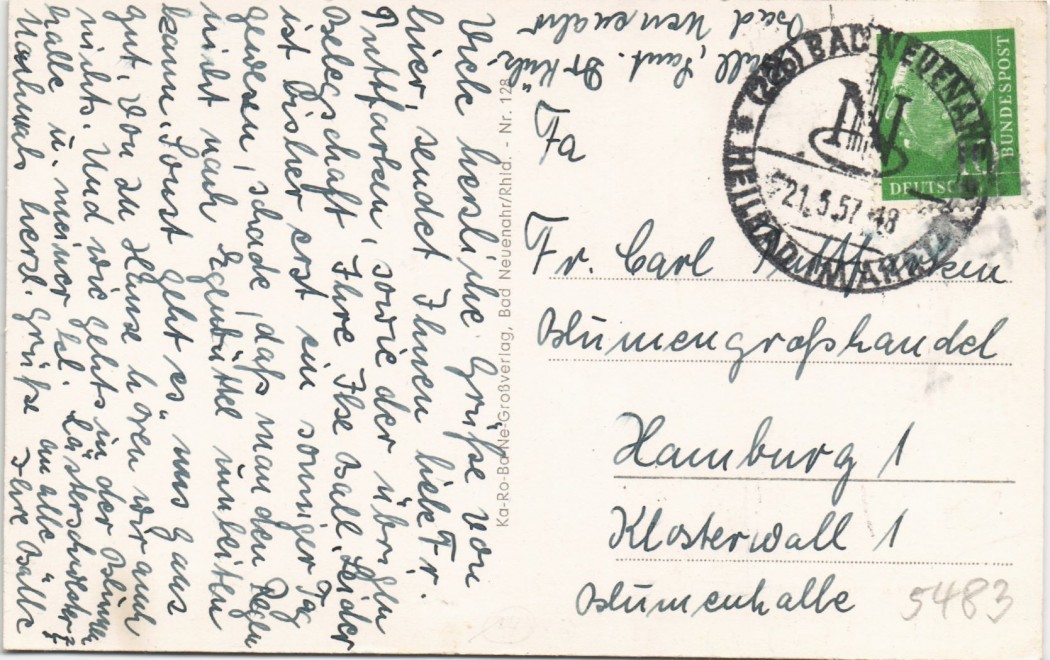 Bad Neuenahr
Viele herzliche Grüße von
hier, sendet Ihnen liebe Fr.
Puttfarken, sowie der übrigen
Belegschaft, Ihre Ilse Ball. Leider
ist bisher erst ein sonniger Tag
gewesen, schade, daß man den Regen
nicht nach Egenbüttel umleiten
kann. Sonst geht es uns ganz
gut. Von zu Hause hören wir auch
nichts. Und wie geht's in der Blumen
halle u. meiner
Nochmals herzl. Grüße an alle Ihre Bälle
Ka-Ro-Ba-Ne-Großverlag, Bad Neuenahr/Rhld. - Nr. 128
(22b) BAD NEUENAHR
HEILBAD IM AHRTAL
21.5.57-18
DEUTSCHE
BUNDESPOST
10
Fa
Fr. Carl Puttfarken
Blumengroßhandel
Hamburg 1
Klosterwall 1
Blumenhalle
5483